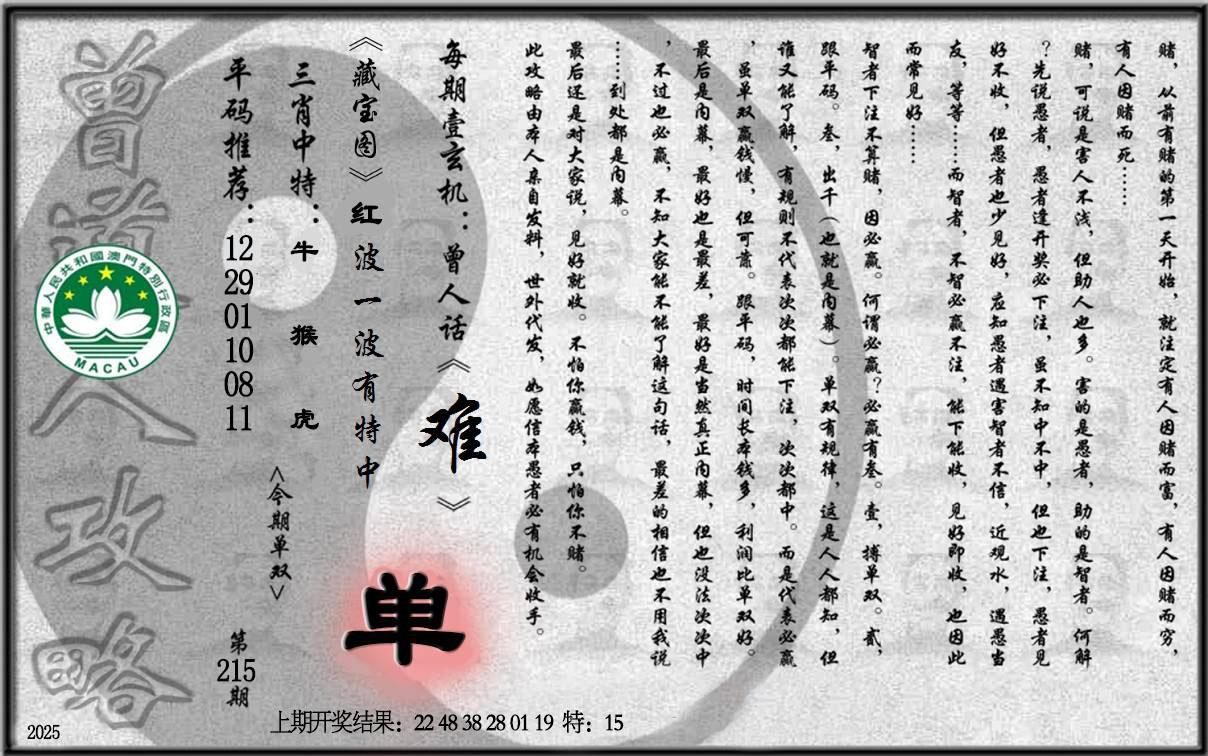 赌，从前有赌的第一天开始，就注定有人因赌而富，有人因赌而穷，
有人因赌而死……
赌，可说是害人不浅，但助人也多。害的是愚者，助的是智者。何解
？先说愚者，愚者逢开奖必下注，虽不知中不中，但也下注，愚者见
好不收，但愚者也少见好，应知愚者遇害智者不信，近观水，遇愚当
友，等等……而智者，不智必赢不注，能下能收，见好即收，也因此
而常见好……
智者下注不算赌，因必赢。何谓必赢？必赢有叁。壹，搏单双。贰，
跟平码。叁，出千（也就是内幕）。单双有规律，这是人人都知，但
谁又能了解，有规则不代表次次都能下注，次次都中。而是代表必赢
，虽单双赢钱慢，但可靠。跟平码，时间长本钱多，利润比单双好。
最后是内幕，最好也是最差，最好是当然真正内幕，但也没法次次中
，不过也必赢，不知大家能不能了解这句话，最差的相信也不用我说
……到处都是内幕。
最后还是对大家说，见好就收。不怕你赢钱，只怕你不赌。
此攻略由本人亲自发料，世外代发，如愿信本愚者必有机会收手。
每期壹玄机：曾人话《难》
《藏宝图》红波一波有特中
三肖中特：牛猴虎
平码推荐：12 29 01 10 08 11
<今期单双>
单
第215期
曾道人攻略
中華人民共和國澳門特別行政區
MACAU
上期开奖结果：22 48 38 28 01 19 特：15
2025